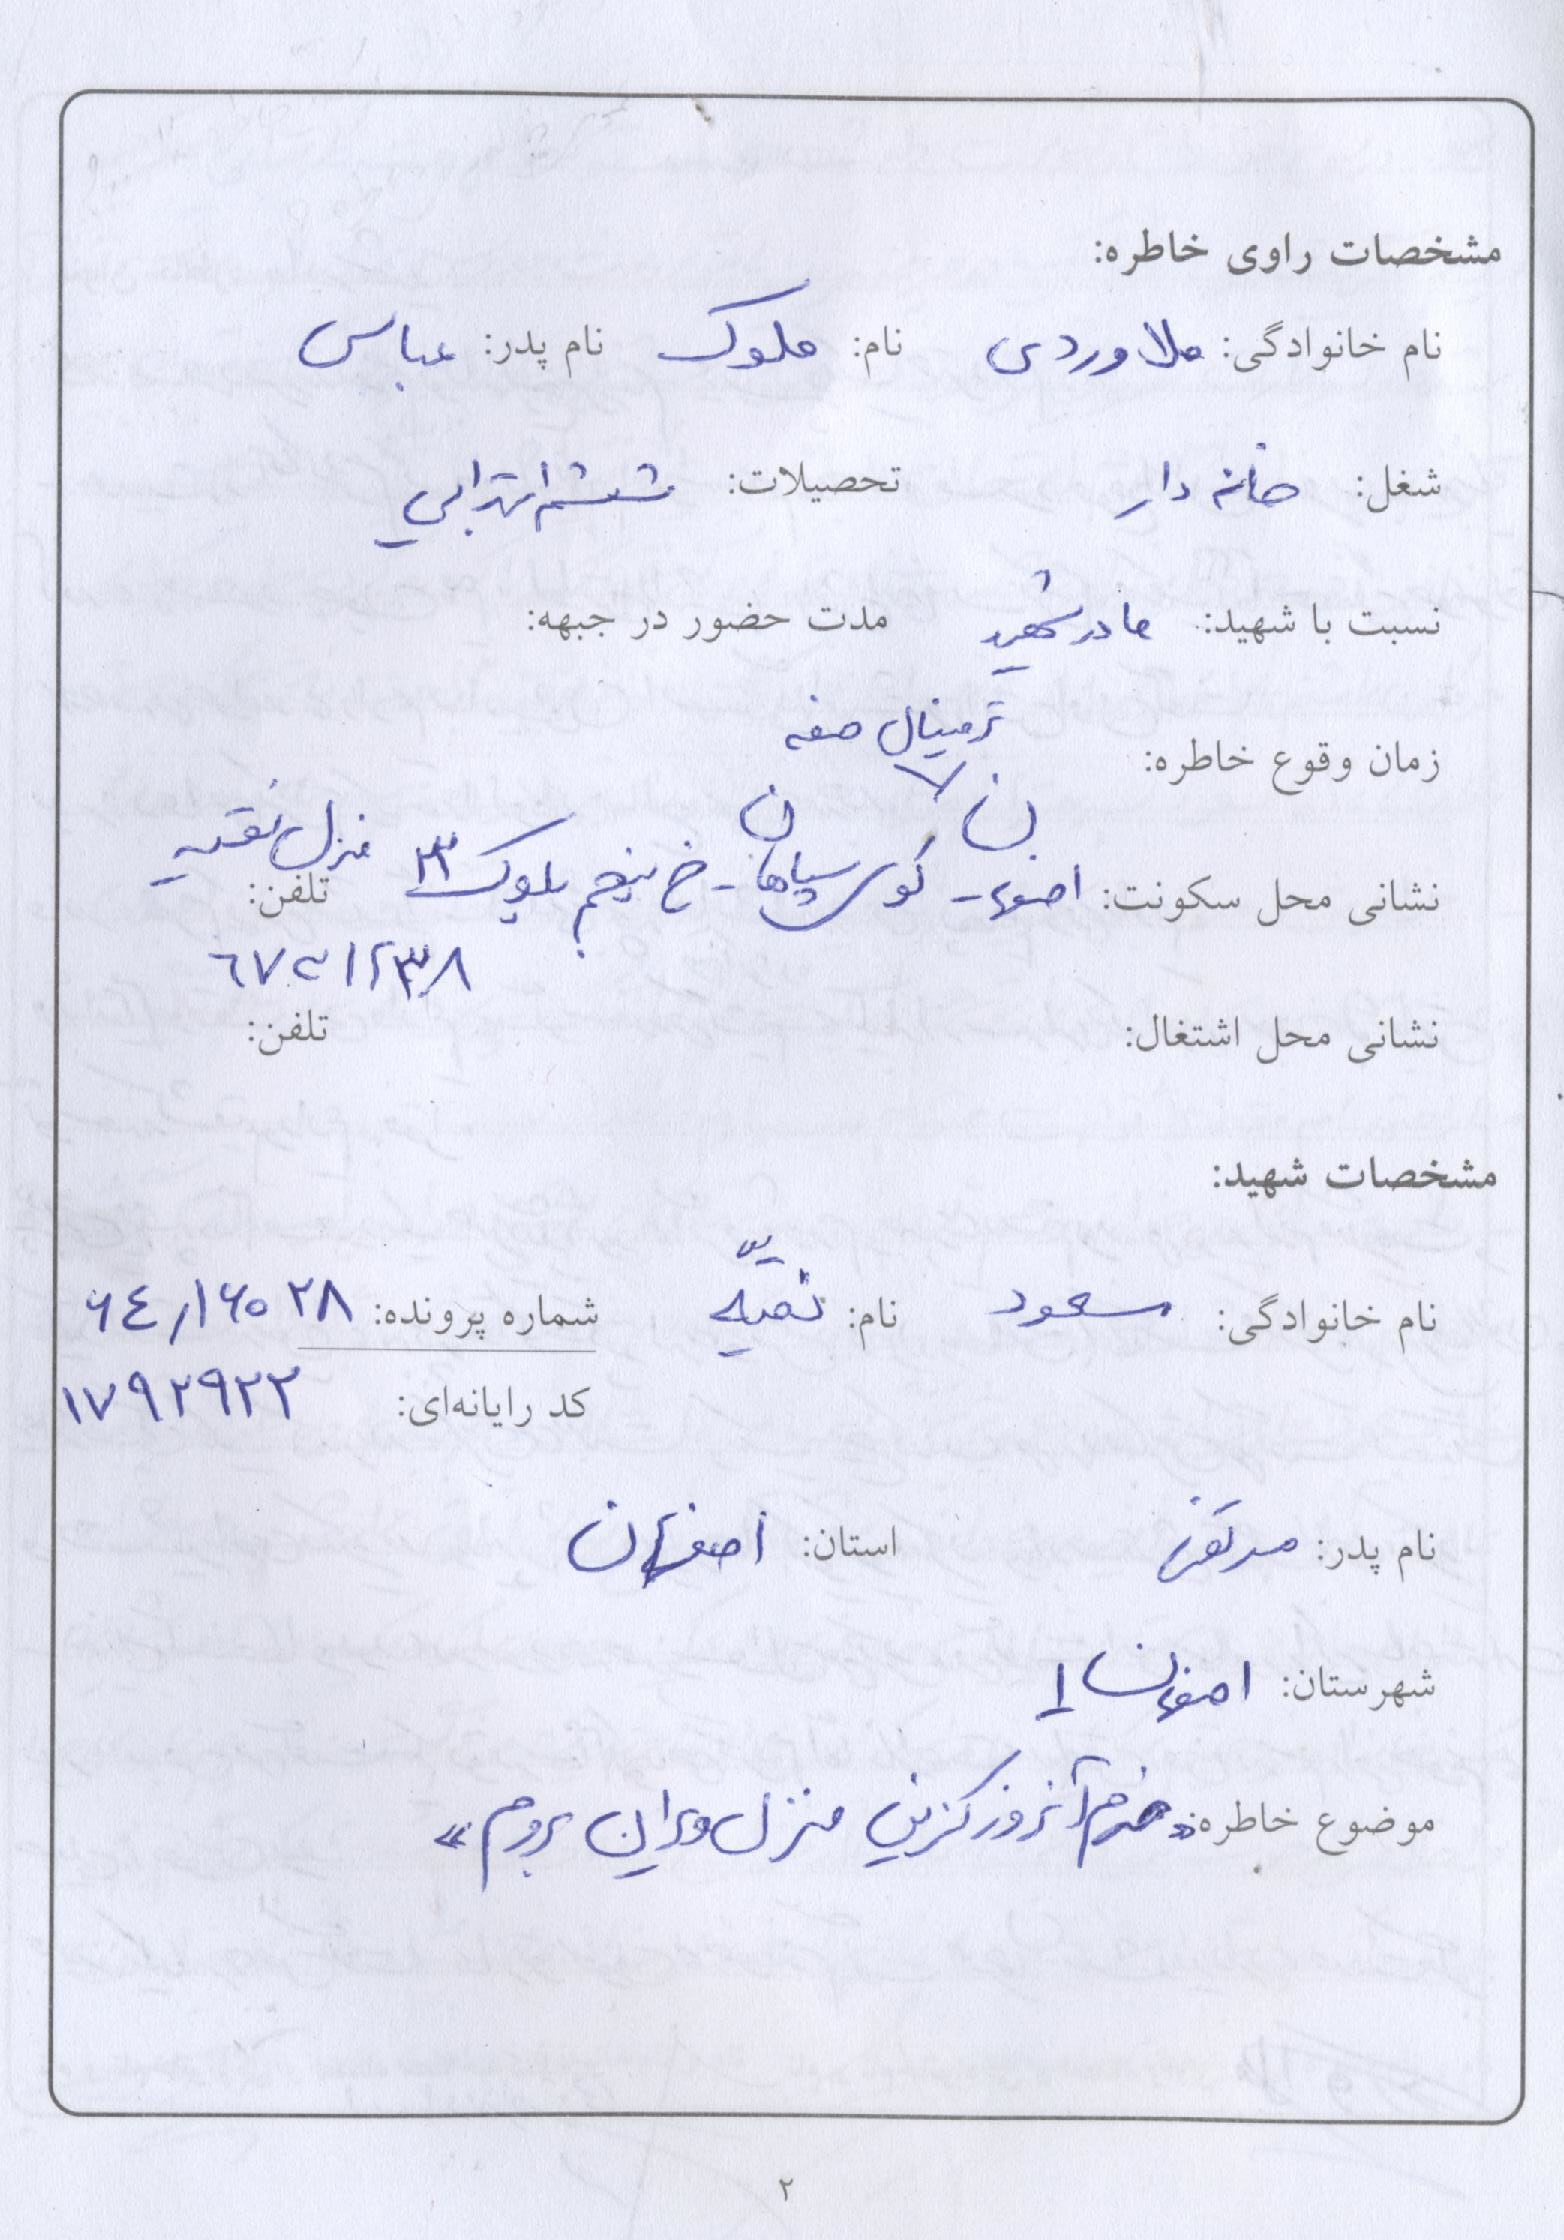 مشخصات راوی خاطره:
نام خانوادگی: ملاوردی نام: ملوک نام پدر: عباس
شغل: خانه دار تحصیلات: ششم ابتدایی
نسبت با شهید: مادر شهید مدت حضور در جبهه:
ترمینال صفه
زمان وقوع خاطره:
نشانی محل سکونت: اصفهان - کوی سپاهان - خ پنجم بلوک ۲۳ منزل تلفن:
نشانی محل اشتغال: تلفن:
مشخصات شهید:
نام خانوادگی: مسعود نام: شماره پرونده: ۶۴/۱۶۰۲۸
کد رایانه‌ای: ۱۷۹۲۹۲۲
نام پدر: مرتضی استان: اصفهان
شهرستان: اصفهان ۱
موضوع خاطره: «خرم آنروز کزین منزل ویران بروم»
۲